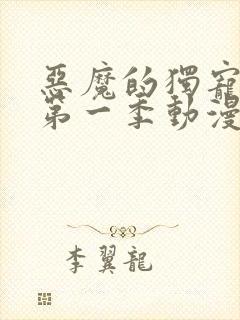 惡魔的獨寵
第一季動漫
李翼龍